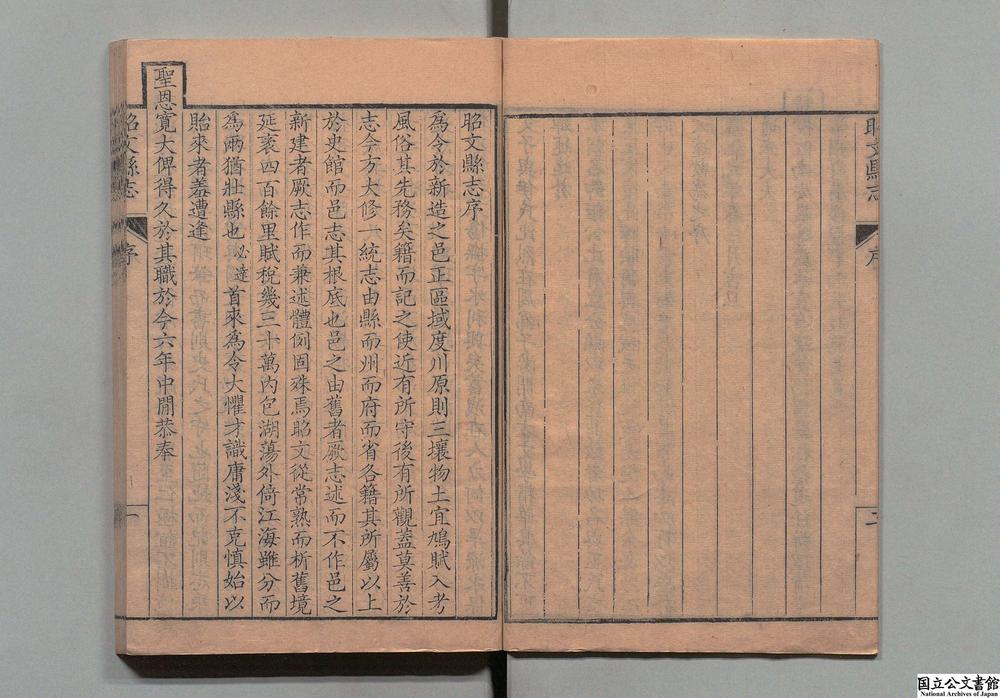 昭文縣志
序
二
昭文縣志序
為令於新造之邑正區域度川原則三壤物土宜鳩賦入考
風俗其先務矣籍而記之使近有所守後有所觀蓋莫善於
志今方大修一統志由縣而州而府而省各籍其所屬以上
於史館而邑志其根底也邑之由舊者厥志述而不作邑之
新建者厥志作而兼述體例固殊焉昭文從常熟而析舊境
延袤四百餘里賦稅幾三十萬內包湖蕩外倚江海雖分而
為兩猶壯縣也必達首來為令大懼才識庸淺不克慎始以
貽來者羞遭逢
聖恩寬大俾得久於其職於今六年中間恭奉
昭文縣志
序
一
国立公文書館
National Archives of Japan